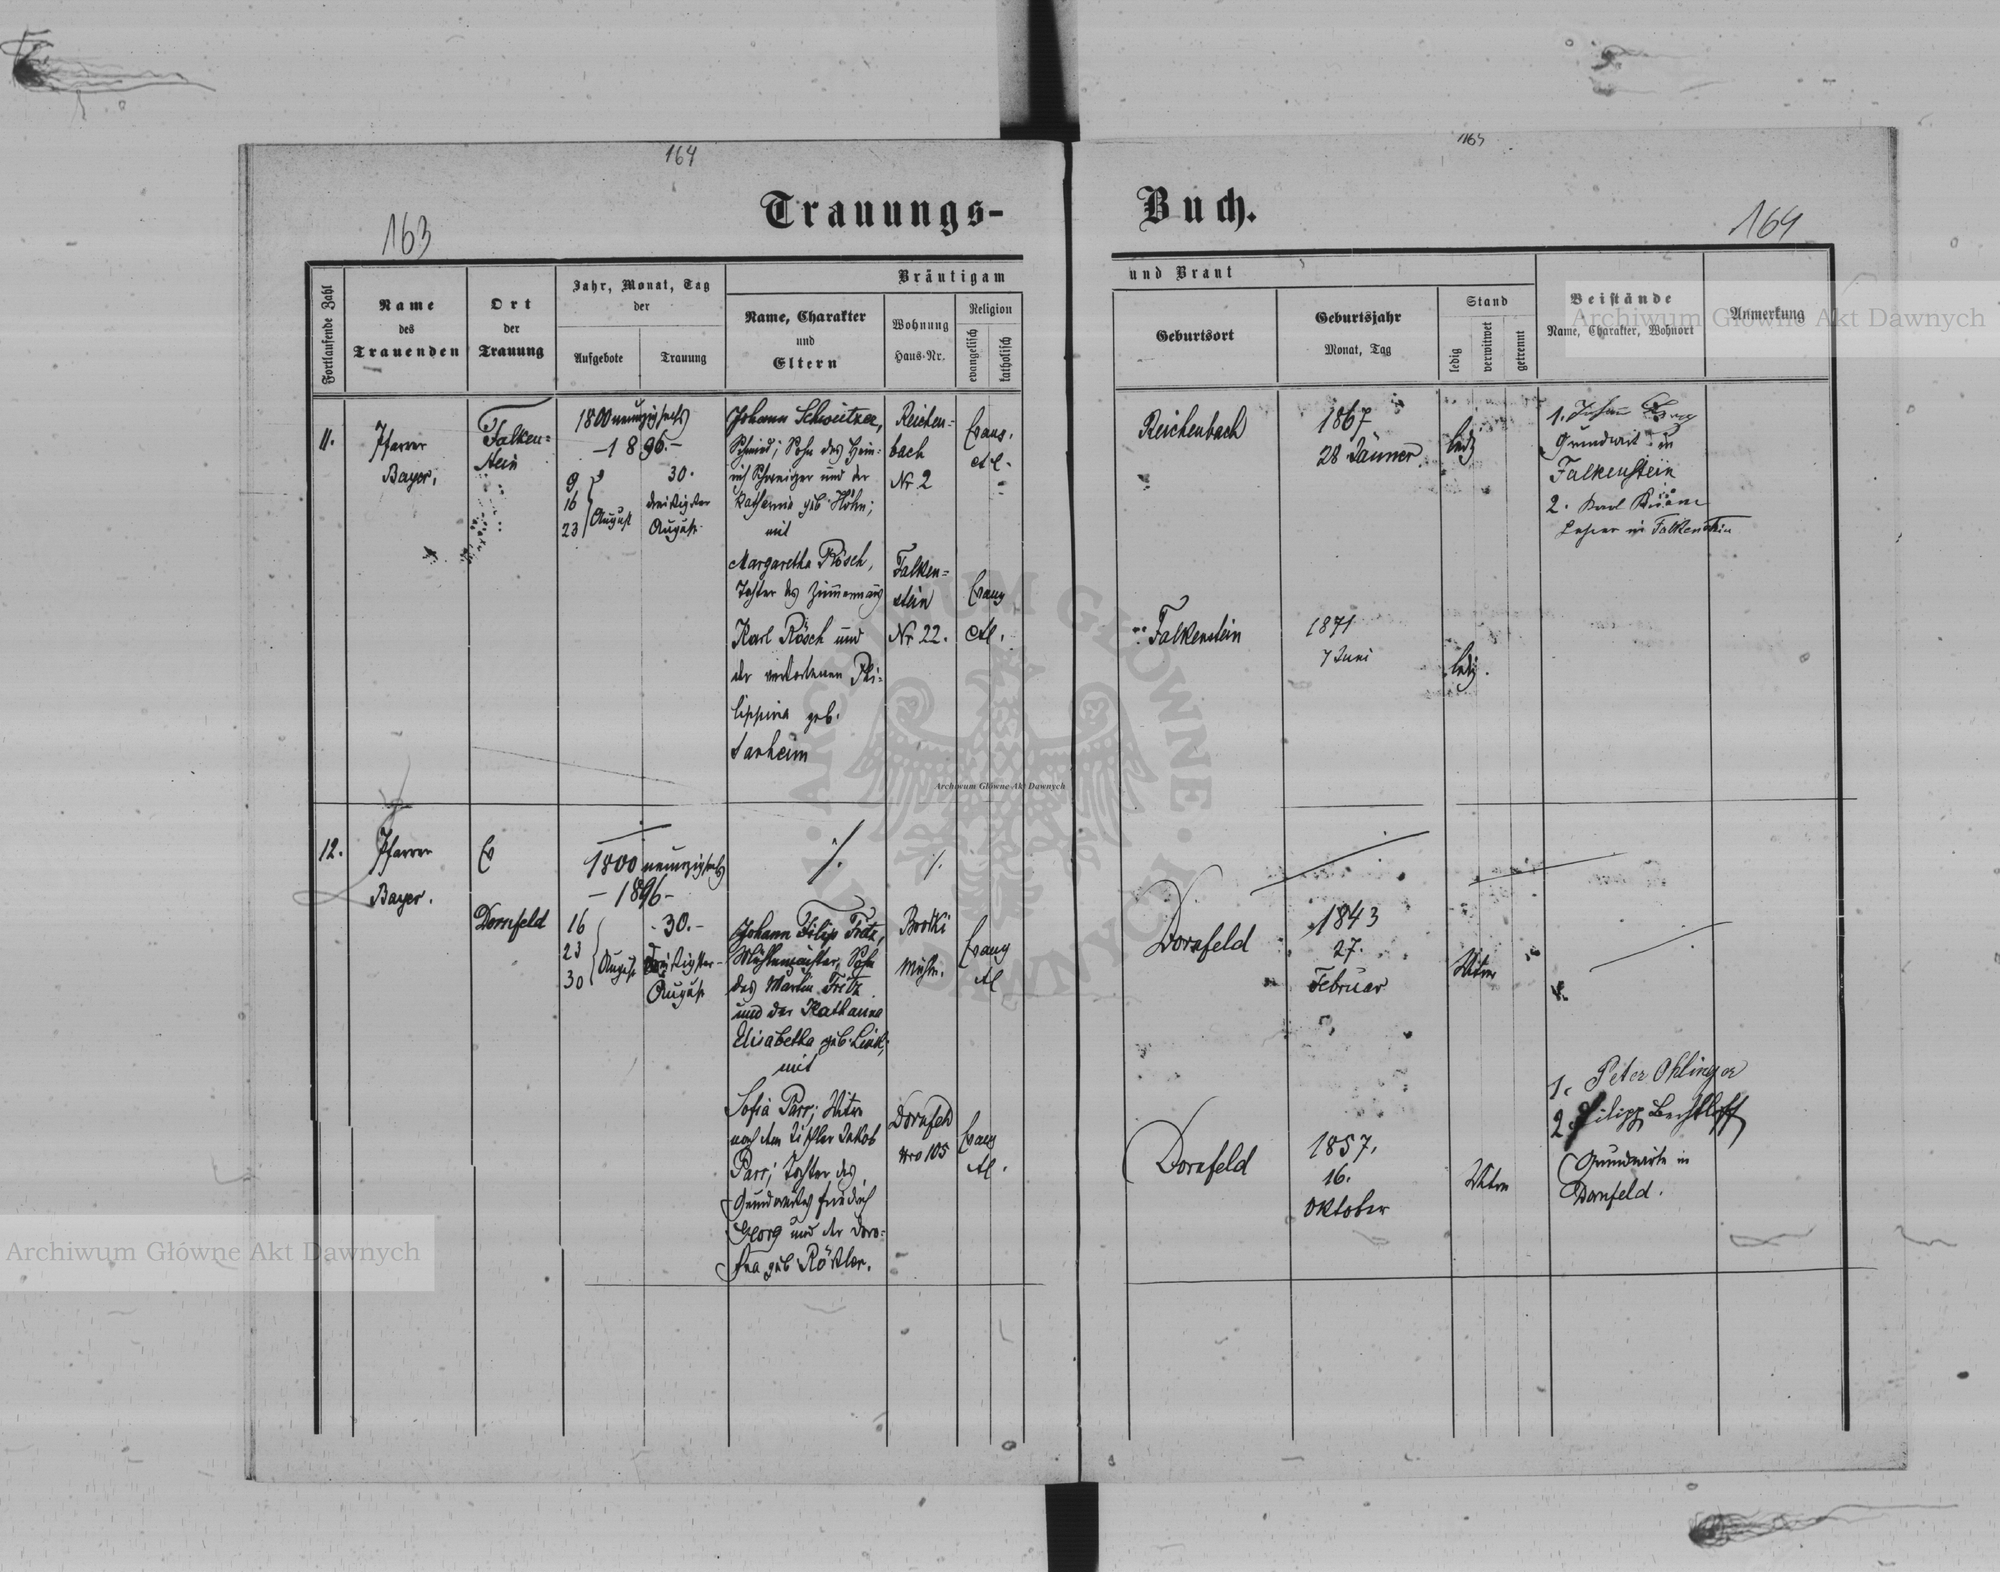 164
165
Trauungs-
Buch.
163
164
Fortlaufende Zahl
Name
des
Trauenden
Ort
der
Trauung
Jahr, Monat, Tag
der
Aufgebote
Trauung
Bräutigam
Name, Charakter
und
Eltern
Wohnung
Haus-Nr.
Religion
evangelisch
katholisch
und Braut
Geburtsort
Geburtsjahr
Monat, Tag
Stand
ledig
verwitwet
getrennt
Beistände
Name, Charakter, Wohnort
Anmerkung
11.
Pfarrer
Bayer,
Falken=
stein
1800neunzigsechs
-1896.-
9
16
23
August
30.
dreißigster
August.
Johann Schweitzer,
Schmied; Sohn des Hein-
rich Schweitzer und der
Katharina geb. Höhn;
mit
Margaretha Rösch,
Tochter des Zimmermanns
Karl Rösch und
der verstorbenen Phi=
lippina geb.
Reichen-
bach
Nr 2
Falken=
stein
Nr 22.
Evang.
A.C.
Evang
A.C.
Reichenbach
1867
28 Jänner
ledig
Falkenstein
1871
7 Juni
ledig.
1. Johann
Grundwirt in
Falkenstein
2. Karl
Lehrer in Falkenstein
12.
Pfarrer
Bayer.
Dornfeld
1800 neunzigsechs
-1896-
16
23
30
August
30.-
dreißigster
August
Johann Filip Fritz,
Mühlmeister, Sohn
des Martin Fritz
und der Katharina
Elisabetha geb. Link,
mit
Sofia Parr; Witwe
nach dem Tischler Jakob
Parr; Tochter des
Grundwirtes Friedrich
Georg und der Doro=
thea geb. Rößler.
Brodki
Mühle.
Dornfeld
Nro 105
Evang
A.C.
Evang
A.C.
Dornfeld
1843
27.
Februar
Witwer
Dornfeld
1857.
16.
Oktober
Witwe
1. Peter Ohlinger
2. Filipp Bechtloff
Grundwirte in
Dornfeld.
Archiwum Główne Akt Dawnych
Archiwum Główne Akt Dawnych
Archiwum Główne Akt Dawnych
ARCHIWUM GŁÓWNE AKT DAWNYCH